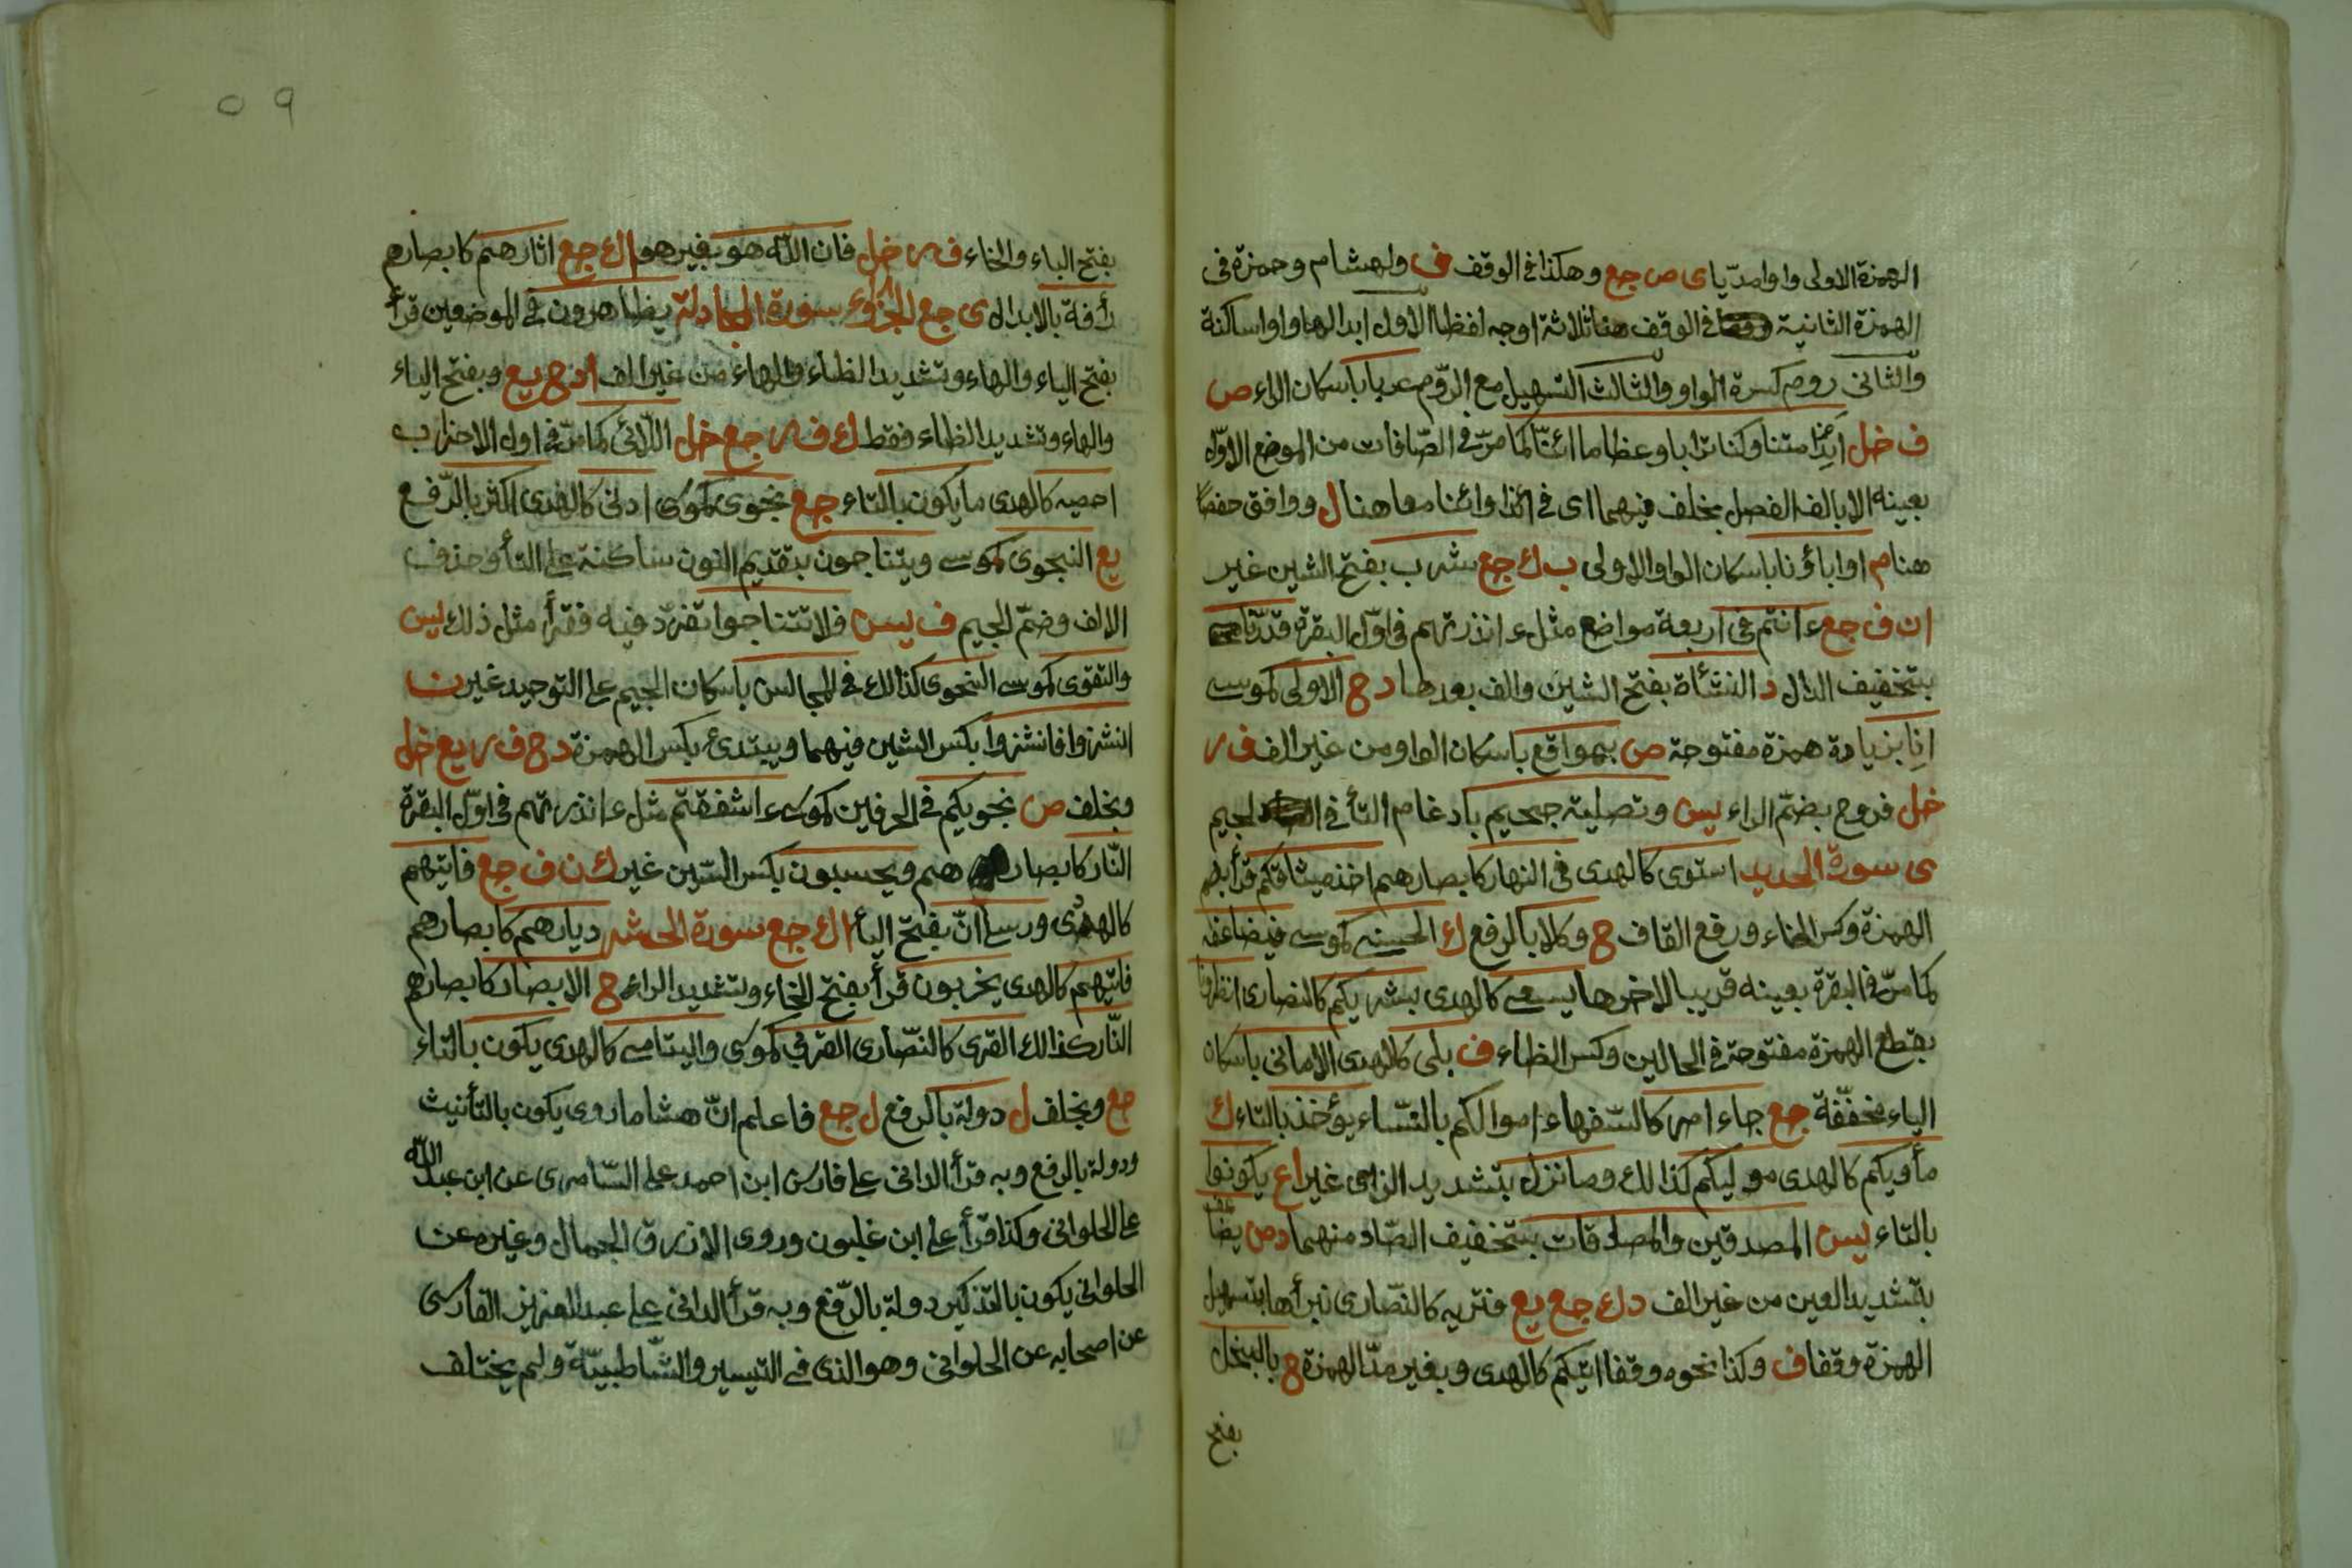 الهمزة الاولى واوا مدّيا ى ص جع وهكذا فى الوقف ف ولهشام وحمزة فى
الهمزة الثانية فى الوقف هنا ثلاثة اوجه لفظا الاول ابدالها واوا ساكنة
والثانى روم كسرة الواو والثالث التسهيل مع الرّوم عربا باسكان الراء ص
ف خل أئذا متنا وكنا ترابا وعظاما ائنّا كما مرّ فى الصّافات من الموضع الاوّل
بعينه الا بالف الفصل بخلف فيهما اى فى ائذا وائنا معا هنا ل ووافق حفصا
هنا م اواباؤنا باسكان الواو الاولى ب ك جع شرب بفتح الشين غير
ا ن ف جع ءانتم فى اربعة مواضع مثل ءانذرتهم فى اوّل البقرة قدّرنا
بتخفيف الدال د النشأة بفتح الشين والف بعدها د ح الاولى كموسى
انا بزيادة همزة مفتوحة ص بمواقع باسكان الواو من غير الف ف ر
خل فروح بضمّ الراء يس وتصلية جحيم بادغام التأ فى الجيم
ى سورة الحديد استوى كالهدى فى النهار كابصارهم اخذ ميثاقكم قرأ بضم
الهمزة وكسر الخاء ورفع القاف ح وكلا بالرفع ك الحسنى كموسى فيضاعفه
كما مرّ فى البقرة بعينه قريبا لاخرها يسعى كالهدى بشريكم كالنصارى انظرونا
بقطع الهمزة مفتوحة فى الحالين وكسر الظاء ف بلى كالهدى الامانى باسكان
الياء مخففّة جع جاء امر كالسّفهاء اموالكم بالنسّاء يؤخذ بالتاء ك
مأويكم كالهدى موليكم كذالك وما نزل بتشديد الزاى غير ا ع يكونوا
بالتاء يس المصدقين والمصدقات بتخفيف الصّاد منهما د ص يضاعف
بتشديد العين من غير الف د ك جع يع فتريه كالنصّارى نبرأها بتسهيل
الهمزة وقفا ف وكذا نحوه وقفا اتيكم كالهدى وبغير مدّ الهمزة ح بالبخل
بفتح
٥٩
بفتح الباء والخاء ف ر خل فان اللّه هو بغير هو ا ك جع اثارهم كابصارهم
رأفة بالابدال ى جع الجزؤ سورة المجادلة يظاهرون فى الموضعين قرأ
بفتح الياء والهاء وتشديد الظاء والهاء من غير الف ا د ح يع وبفتح الياء
والهاء وتشديد الظاء فقط ك ف ر جع خل اللّائى كما مرّ فى اول الاحزاب
احصيه كالهدى ما يكون بالتاء جع نجوى كموسى ادنى كالهدى اكثر بالرّفع
يع النجوى كموسى ويتناجون بتقديم النون ساكنة على التأ وحذف
الالف وضمّ الجيم ف يس فلا تتناجوا تفرّد فيه فقرأ مثل ذلك يس
والتقوى كموسى النجوى كذالك فى المجالس باسكان الجيم على التوحيد غير ن
انشزوا فانشزوا بكسر الشين فيهما ويبتدئ بكسر الهمزة د ح ف ر يع خل
وبخلف ص نجويكم فى الحرفين كموسى ءاشفقتم مثل ءانذرتهم فى اوّل البقرة
النّار كابصارهم ويحسبون بكسر السّين غير ك ن ف جع فاتيهم
كالهدى ورسلى انّ بفتح اليأ ا ك جع سورة الحشر ديارهم كابصارهم
فاتيهم كالهدى يخربون قرأ بفتح الخاء وتشديد الراء ح الابصار كابصارهم
النّار كذالك القرى كالنصّارى القربى كموسى واليتامى كالهدى يكون بالتاء
جع وبخلف ل دولة بالرفع ل جع فاعلم انّ هشاما روى يكون بالتأنيث
ودولة بالرفع وبه قرأ الدانى على فارس ابن احمد على السّامرى عن ابن عبد اللّه
على الحلوانى وكذا قرأ على ابن غلبون وروى الازرق الجمال وغيره عن
الحلوانى يكون بالتذكير دولة بالرّفع وبه قرأ الدانى على عبد العزيز الفارسى
عن اصحابه عن الحلوانى وهو الذى فى التيسير والشّاطبيّة ولم يختلف